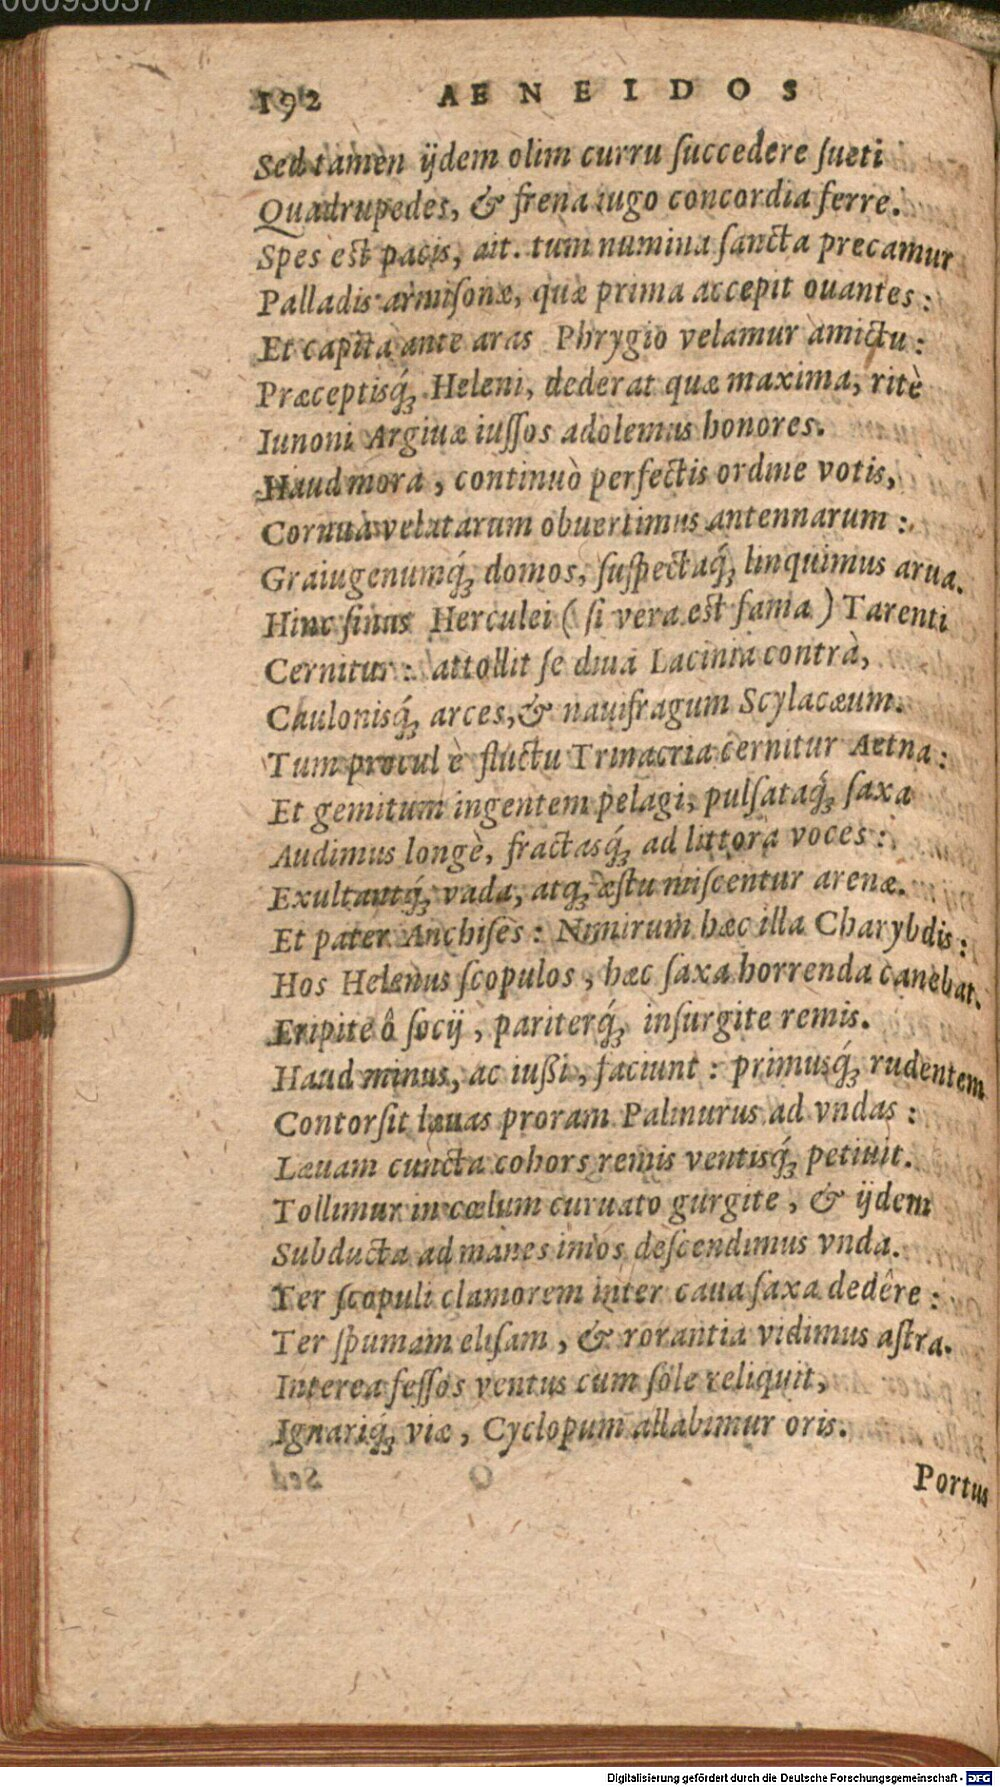 00093037
192 AENEIDOS
Sed tamen ijdem olim curru ſuccedere ſueti
Quadrupedes, & frena iugo concordia ferre.
Spes est pacis, ait. tum numina ſancta precamur
Palladis armiſonæ, quæ prima accepit ouantes:
Et capita ante aras Phrygio velamur amictu:
Præceptisq́; Heleni, dederat quæ maxima, ritè
Iunoni Argiuæ iuſſos adolemus honores.
Haud mora, continuò perfectis ordine votis,
Cornua velatarum obuertimus antennarum:
Graiugenumq́; domos, ſuſpectaq́; linquimus arua.
Hinc ſinus Herculei (ſi vera est fama) Tarenti
Cernitur: attollit ſe diua Lacinia contrà,
Caulonisq́; arces, & nauifragum Scylacæum.
Tum procul è fluctu Trinacria cernitur Aetna:
Et gemitum ingentem pelagi, pulſataq́; ſaxa
Audimus longè, fractasq́; ad littora voces:
Exultantq́; vada, atq; æſtu miſcentur arenæ.
Et pater Anchiſes: Nimirum hæc illa Charybdis:
Hos Helenus ſcopulos, hæc ſaxa horrenda canebat.
Eripite ô ſocij, pariterq́; inſurgite remis.
Haud minus, ac iußi, faciunt: primusq́; rudentem
Contorſit læuas proram Palinurus ad vndas:
Læuam cuncta cohors remis ventisq́; petiuit.
Tollimur in cœlum curuato gurgite, & ijdem
Subducta ad manes imos deſcendimus vnda.
Ter ſcopuli clamorem inter caua ſaxa dedêre:
Ter ſpumam eliſam, & rorantia vidimus aſtra.
Interea feſſos ventus cum ſole reliquit,
Ignariq́; viæ, Cyclopum allabimur oris.
Portus
Digitalisierung gefördert durch die Deutsche Forschungsgemeinschaft - DFG